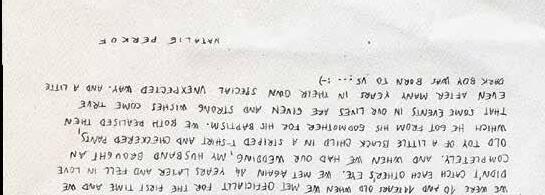 WE WERE 10 AND YEARS OLD WHEN WE MET OFFICIALLY FOR THE FIRST TIME AND WE
DIDN'T CATCH EACH OTHER'S EYE. WE MET AGAIN YEARS LATER AND FELL IN LOVE
COMPLETELY. AND WHEN WE HAD OUR WEDDING, MY HUSBAND BROUGHT AN
OLD TOY OF A LITTLE BLACK CHILD IN A STRIPED T-SHIRT AND CHECKERED PANTS,
WHICH HE GOT FROM HIS GODMOTHER FOR HIS BAPTISM. WE BOTH REALISED THEN
THAT SOME EVENTS IN OUR LIVES ARE GIVEN AND STRONG WISHES COME TRUE
EVEN AFTER MANY YEARS IN THEIR OWN SPECIAL UNEXPECTED WAY. AND A LITTLE
DARK BOY WAS BORN TO US... :-)
NATALIE PERKOF